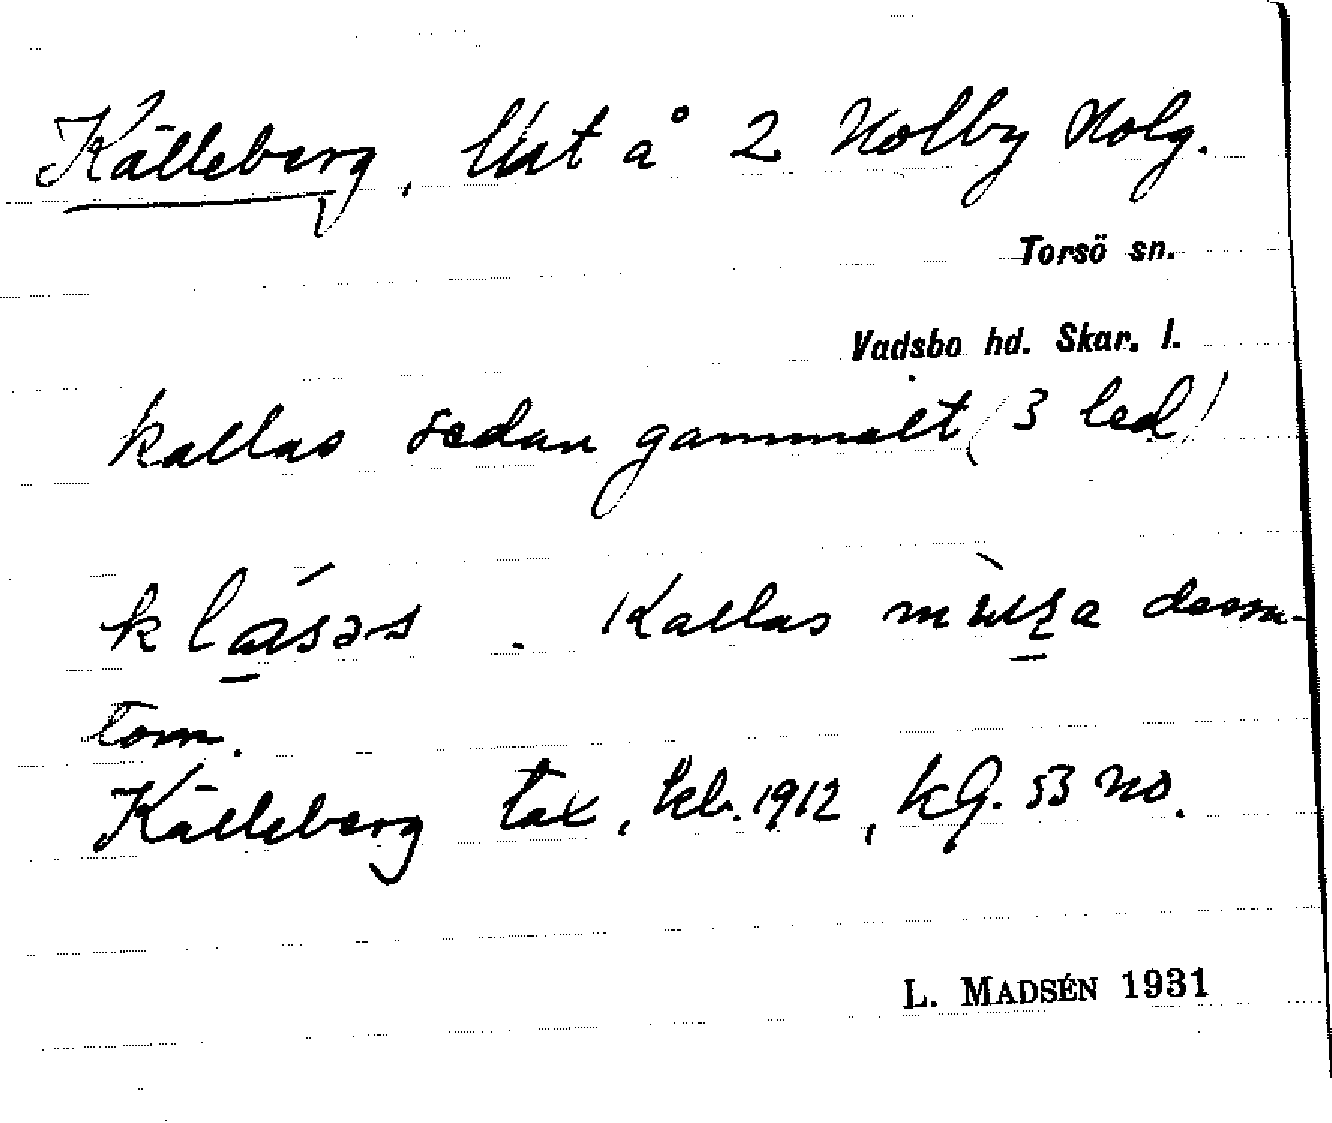 Källeberg, lht å 2 Nolby Nolg.
Torsö sn.
Vadsbo hd. Skar. l.
kallas sedan gammalt (3 led)
klásəs. Kallas dessu-
tom.
Källeberg tax, kb. 1912, kg. 53 no.
L. MADSÉN 1931